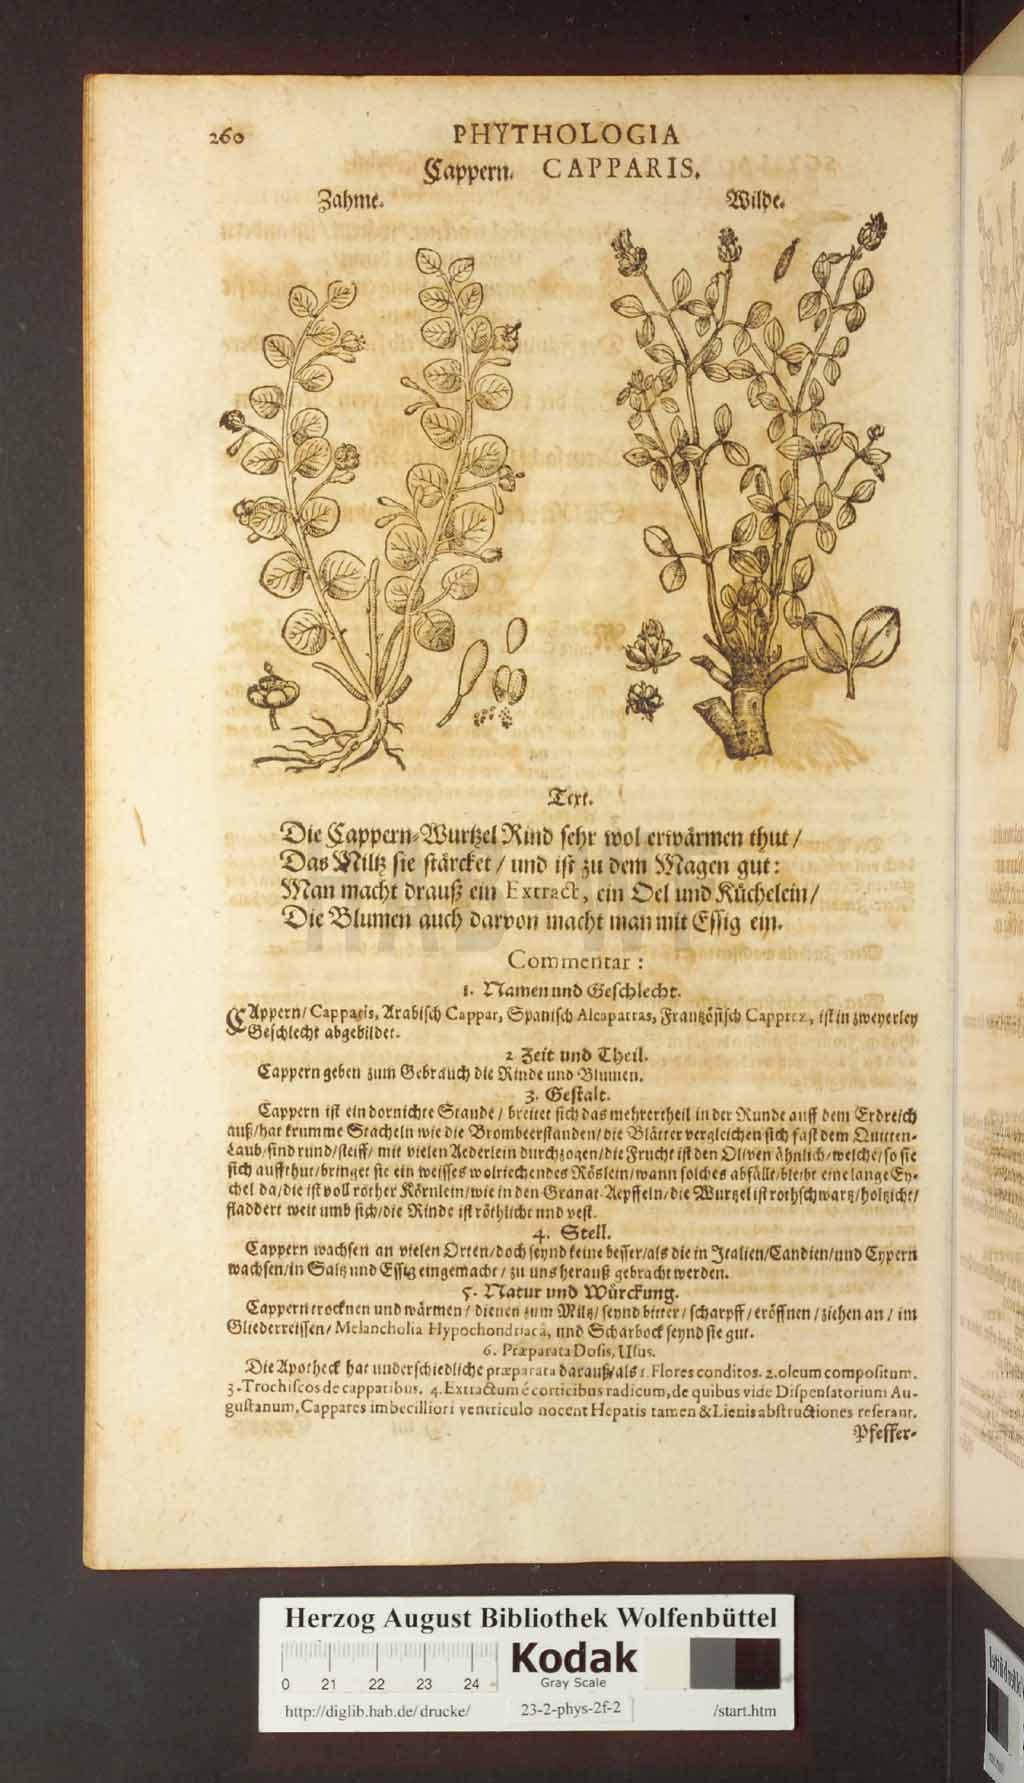 260 PHYTHOLOGIA
Cappern. CAPPARIS.
Zahme. Wilde.
Text.
Die Cappern-Wurtzel Rind sehr wol erwärmen thut /
Das Miltz sie stärcket / und ist zu dem Magen gut:
Man macht drauß ein Extract, ein Oel und Küchelein /
Die Blumen auch darvon macht man mit Essig ein.
Commentar :
1. Namen und Geschlecht.
CAppern / Capparis, Arabisch Cappar, Spanisch Alcaparras, Frantzösisch Capprez, ist in zweyerley
Geschlecht abgebildet.
2 Zeit und Theil.
Cappern geben zum Gebrauch die Rinde und Blumen.
3. Gestalt.
Cappern ist ein dornichte Staude / breitet sich das mehrertheil in der Runde auff dem Erdreich
auß / hat krumme Stacheln wie die Brombeerstanden / die Blätter vergleichen sich fast dem Quitten-
Laub / sind rund / steiff / mit vielen Aederlein durchzogen / die Frucht ist den Oliven ähnlich / welche / so sie
sich auffthut / bringet sie ein weisses wolriechendes Röslein / wann solches abfällt / bleibt eine lange Ey-
chel da / die ist voll rother Körnlein / wie in den Granat-Aepffeln / die Wurtzel ist rothschwartz / holtzicht /
fladdert weit umb sich / die Rinde ist röthlicht und vest.
4. Stell.
Cappern wachsen an vielen Orten / doch seynd keine besser / als die in Italien / Candien / und Cypern
wachsen / in Saltz und Essig eingemacht / zu uns herauß gebracht werden.
5. Natur und Würckung.
Cappern trocknen und wärmen / dienen zum Miltz / seynd bitter / scharpff / eröffnen / ziehen an / im
Gliederreissen / Melancholia Hypochondriaca, und Scharbock seynd sie gut.
6. Præparata Dosis, Usus.
Die Apotheck hat underschiedliche præparata darauß / als 1. Flores conditos. 2. oleum compositum.
3. Trochiscos de capparibus. 4. Extractum é corticibus radicum, de quibus vide Dispensatorium Au-
gustanum, Cappares imbecilliori ventriculo nocent Hepatis tamen & Lienis abstructiones referant.
Pfeffer-
Herzog August Bibliothek Wolfenbüttel
0 21 22 23 24
Kodak
Gray Scale
http://diglib.hab.de/drucke/ 23-2-phys-2f-2 /start.htm